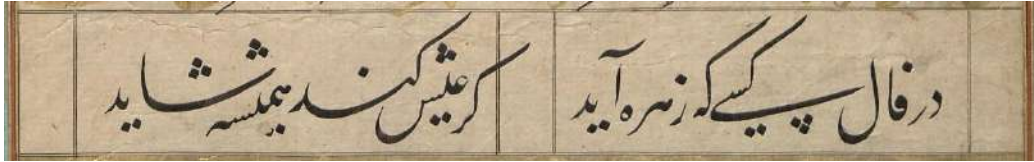 در فال کسی که زهره آید گر عیش کند همیشه شاید